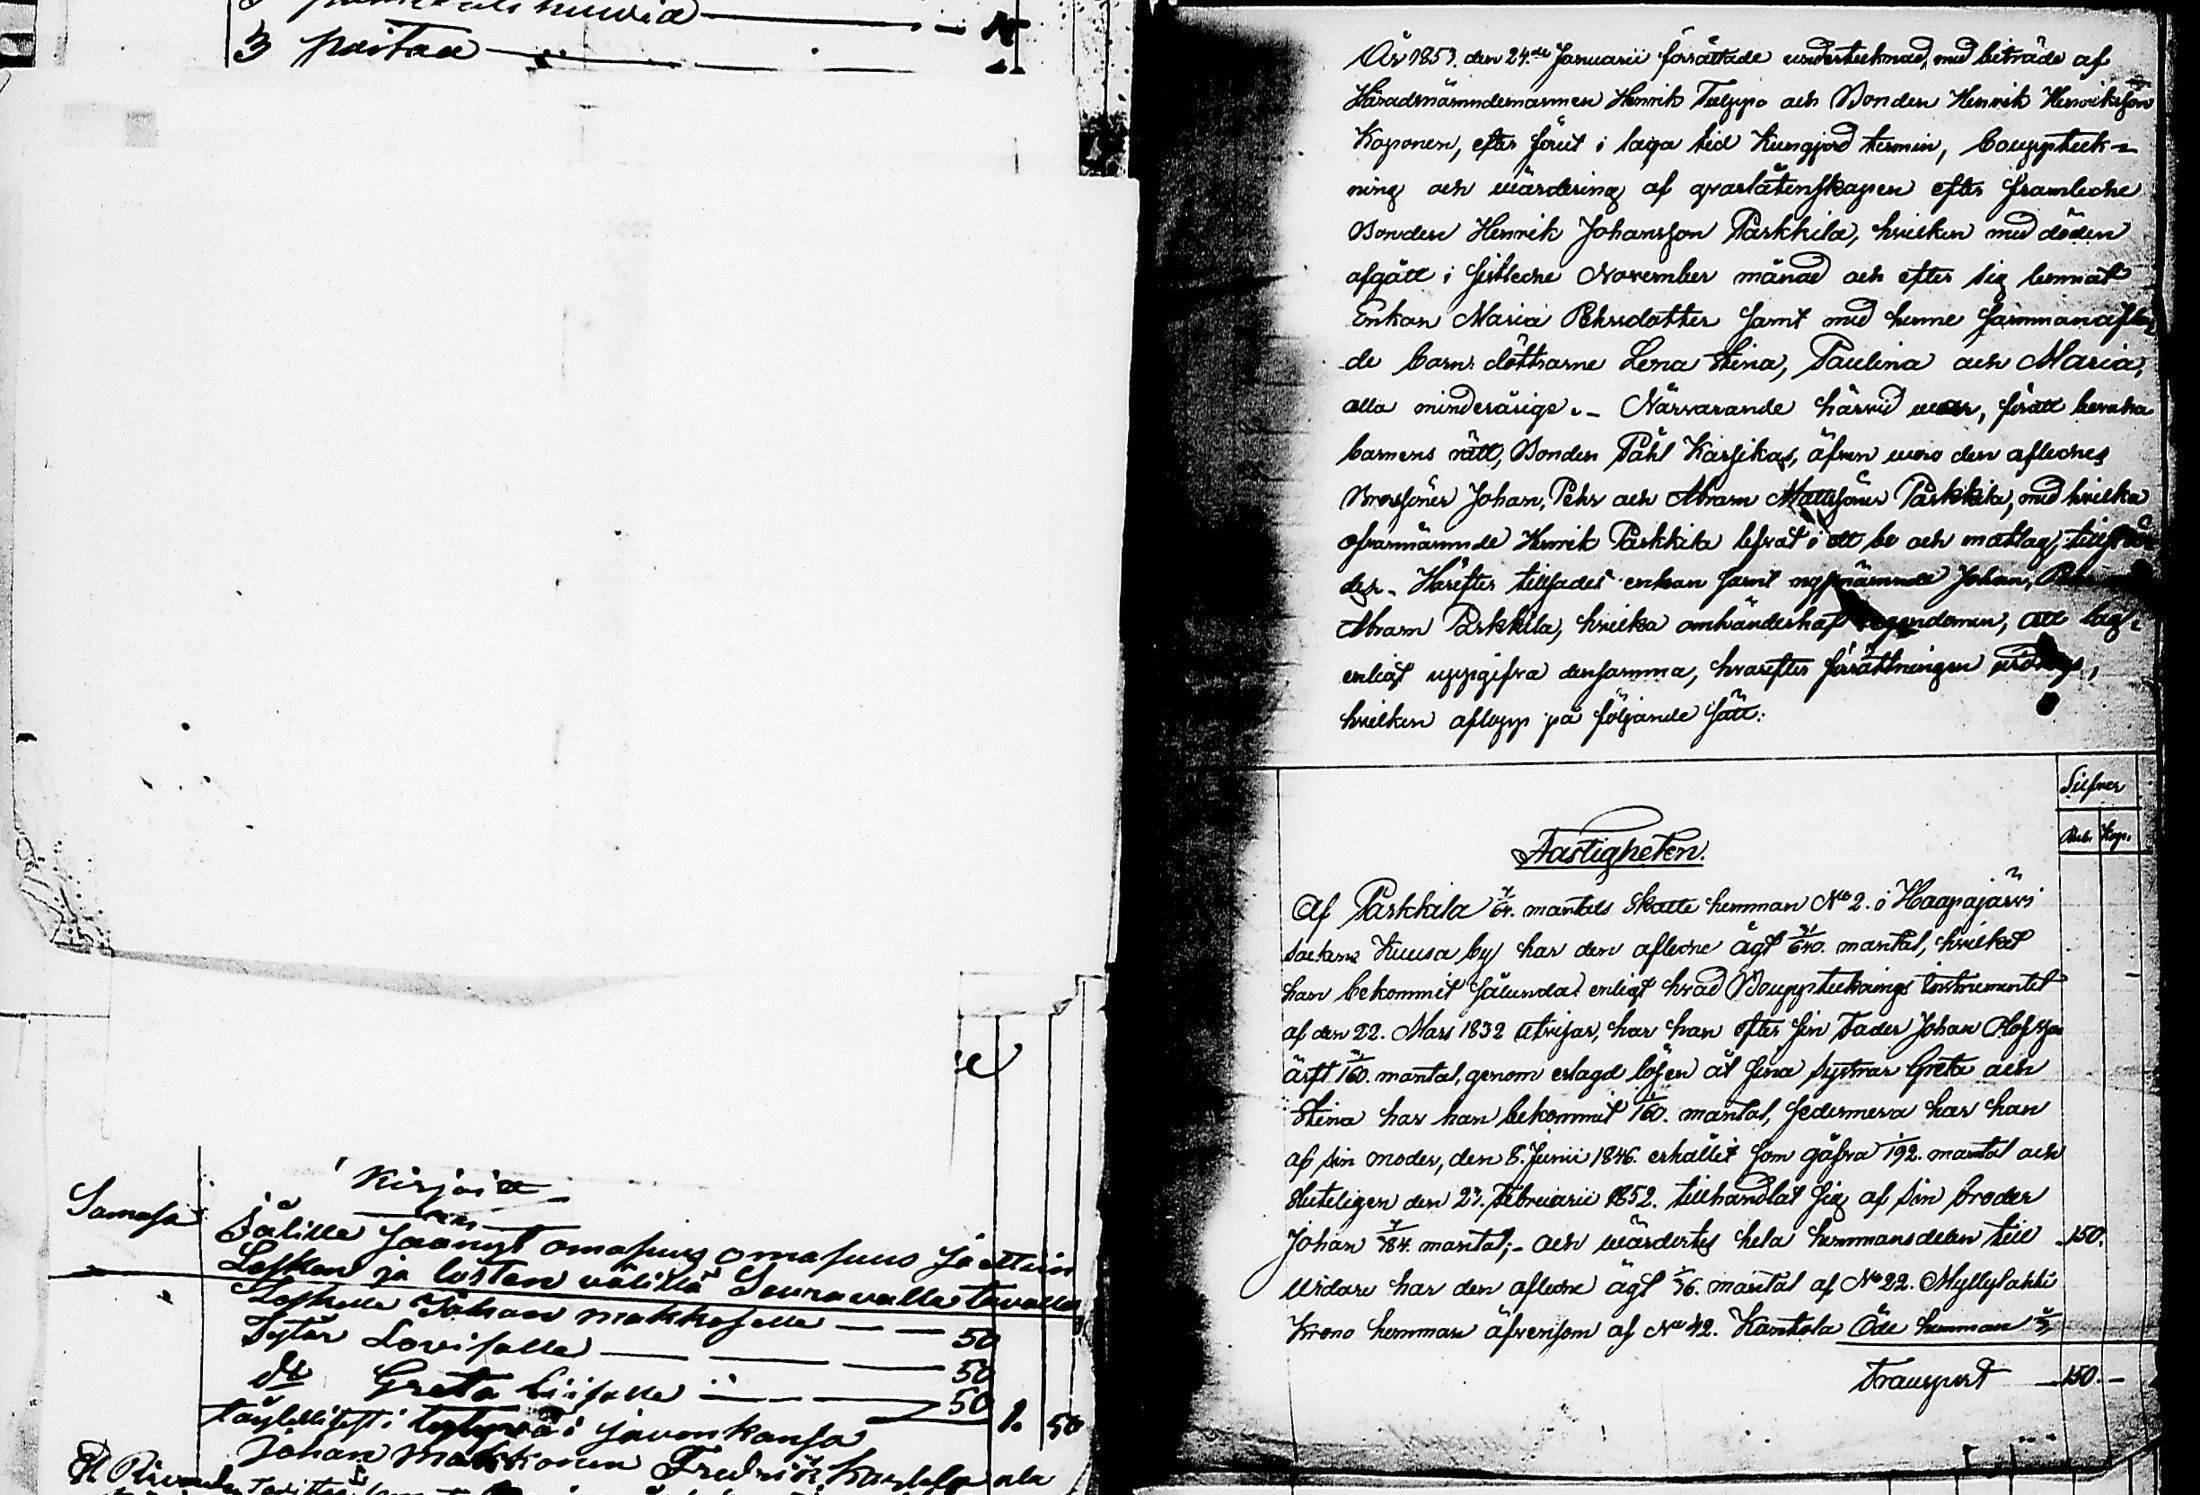 3 paitaa
Kirjoia
Samasa
Jälille jäänyt omasuus omasuus jaettiin
Lesken ja losten välillä Seuravalla tavalla
Leskelle Johan makkoselle — — 50
Tytär Lovisalle — — — 50
do Greta Liisalle — — 50
1. 50
täydellisesti tytyvä i javonkansa
Johan Makkonen Fredrik
År 1853. den 24de Januarii förrättade undertecknad, med biträde af
Häradsnämndemannen Henrik Tulppo och Bonden Henrik Henriksson
Kaponen, efter förut i laga tid Kungjord termin, bouppteck-
ning och värdering af qvarlåtenskapen efter framledne
Bonden Henrik Johansson Parkkila, hvilken med döden
afgått i sistledne November månad och efter sig lemnat
Enkan Maria Pehrsdotter samt med henne sammanaflin
de barn: döttrarne Lena Stina, Paulina och Maria,
alla minderåriga. – Närvarande härvid var, föratt bevaka
barnens rätt, Bonden Påhl Karsikas, äfven voro den aflednes
Brorsöner Johan, Pehr och Abram Mattssöner Parkkila, med hvilka
ofvannämnde Henrik Parkkila lefvat i ett bo och matlag,
des. Härefter tillsades enkan samt nyssnämnde Johan,
Abram Parkkila, hvilka omhänderhaft egendomen, att lag-
enligt uppgifva densamma, hvarefter förrättningen
hvilken aflopp på följande sätt:
Silfver
Rub. Kop.
Fastigheten.
Af Parkkila 7/64. mantals Skatte hemman No 2. i Haapajärvi
socken Kuusa by har den afledne ägt 21/640. mantal, hvilket
han bekommit sålunda: enligt hvad Bouppteknings instrumentet
af den 22. Mars 1832 utvisar, har han efter sin Fader Johan Olofsson
ärft 160. mantal, genom erlagd lösen åt sina systrar Greta och
Stina har han bekommit 160. mantal, sedermera har han
af sin moder, den 8. Junii 1846. erhållit som gåfva 192. mantal och
sluteligen den 27. Februarii 1852. tillhandlat sig af sin broder
Johan 7/384. mantal; – och värdertes hela hemmansdelen till 150.
Vidare har den afledne ägt 1/36. mantal af No 22. Myllylahti
Krono hemman äfvensom af No 42. Kantola Öde hemman
Transport 150. –